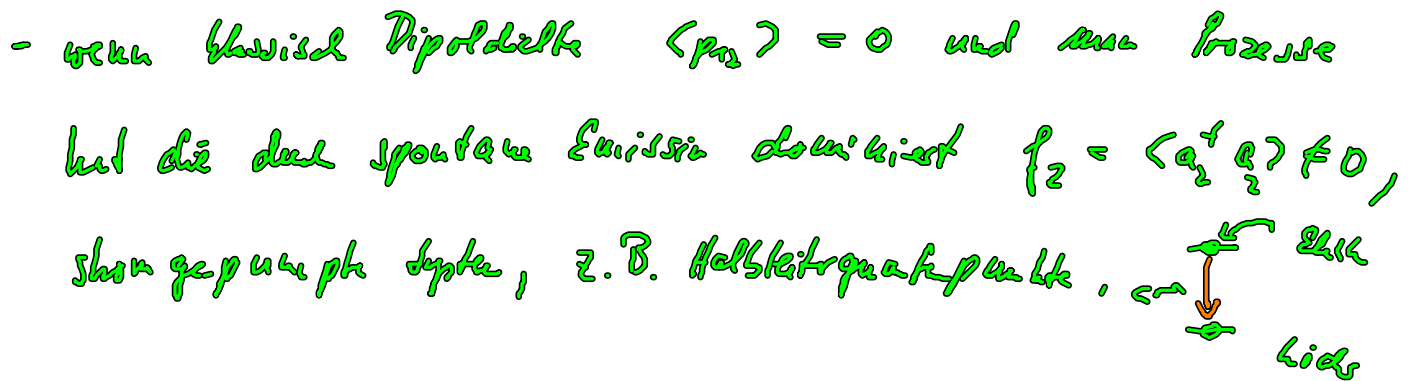 - wenn klassisch Dipoldichte ⟨p₁₂⟩ = 0 und man Prozesse
hat die durch spontane Emission dominiert f₂ = ⟨a₂† a₂⟩ ≠ 0,
strom gepumpte System, z.B. Halbleiterquantenpunkte.